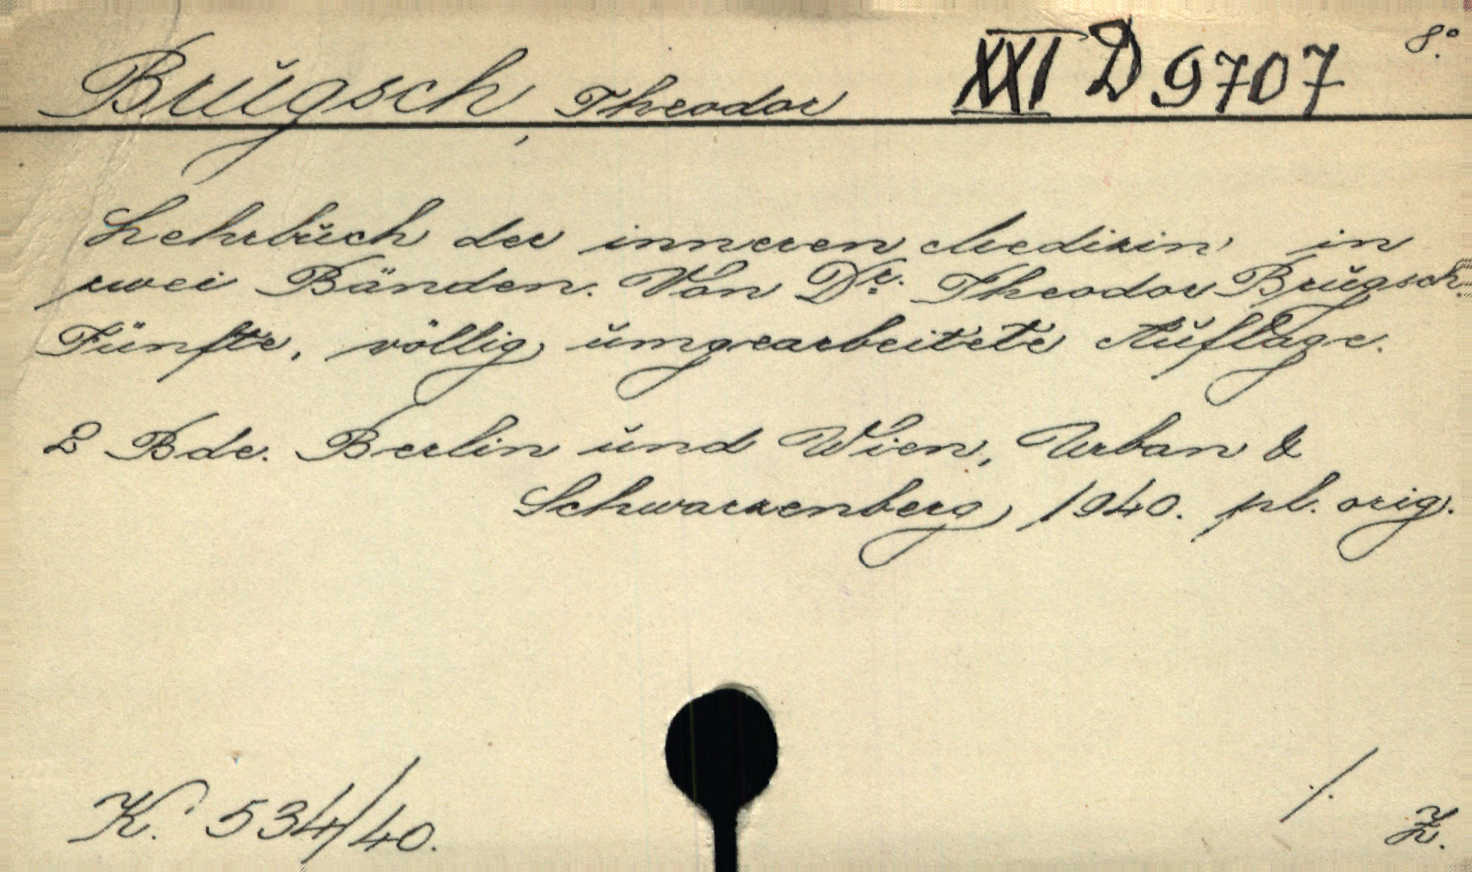 Brugsch, Theodor XXI D 9707 8°.
Lehrbuch der inneren Medizin in
zwei Bänden. Von Dr. Theodor Brugsch.
Fünfte, völlig umgearbeitete Auflage.
2 Bde. Berlin und Wien, Urban &
Schwarzenberg, 1940. pl. orig.
K. 534/40. ./.
Z.